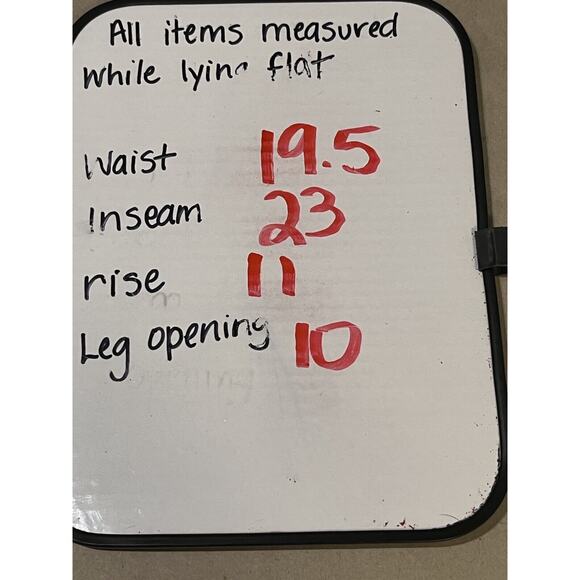 All items measured
while lying flat
Waist 19.5
Inseam 23
rise 11
Leg opening 10